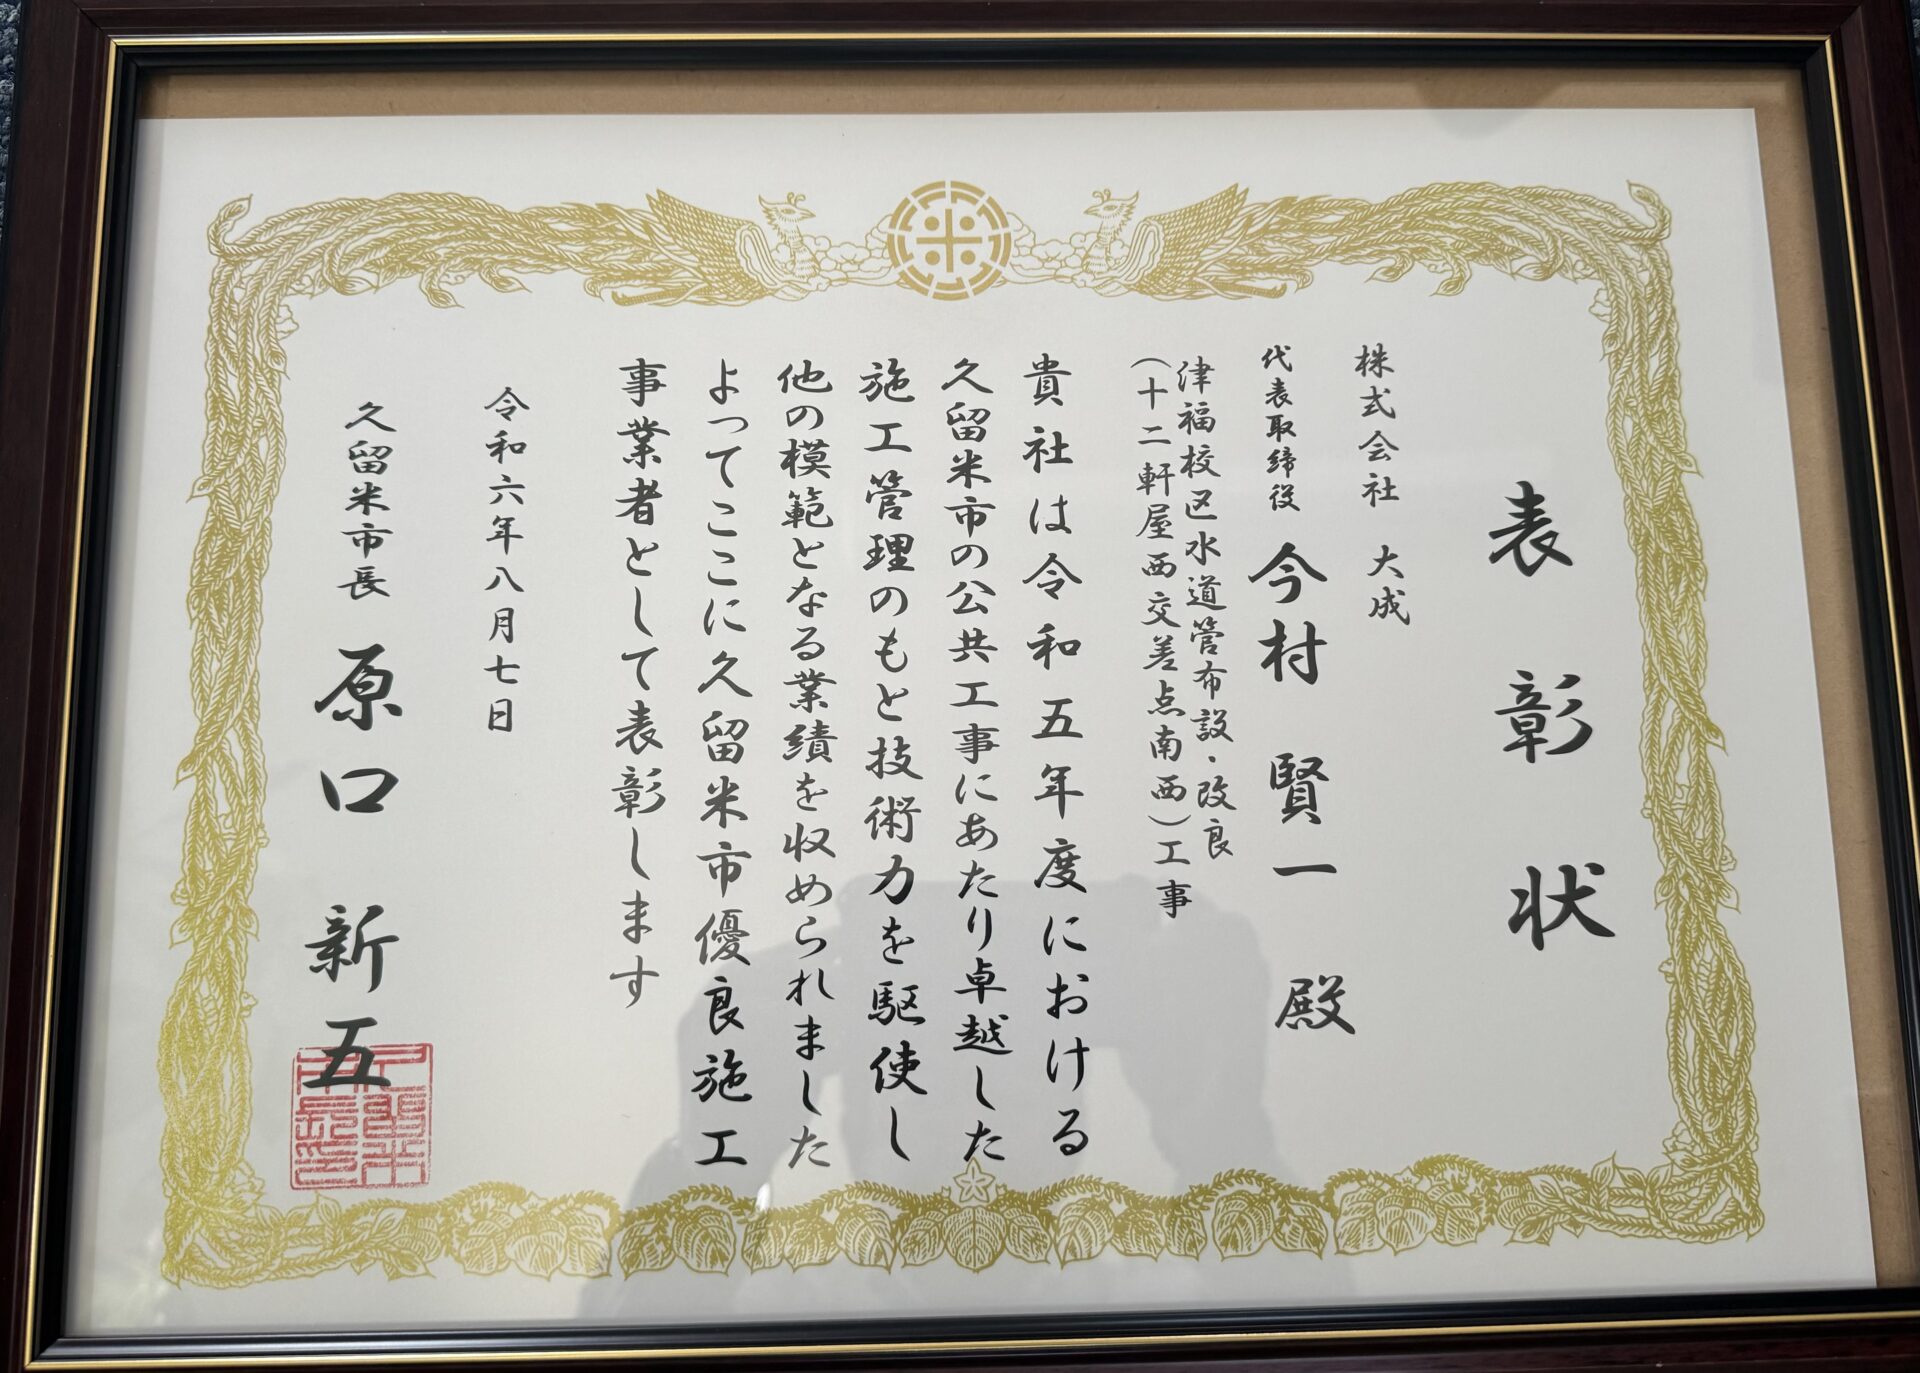 表彰状
株式会社 大成
代表取締役 今村 賢一 殿
津福校区水道管布設・改良
(十二軒屋西交差点南西)工事
貴社は令和五年度における
久留米市の公共工事にあたり卓越した
施工管理のもと技術力を駆使し
他の模範となる業績を収められました
よってここに久留米市優良施工
事業者として表彰します
令和六年八月七日
久留米市長 原口 新五
久留米
市長印